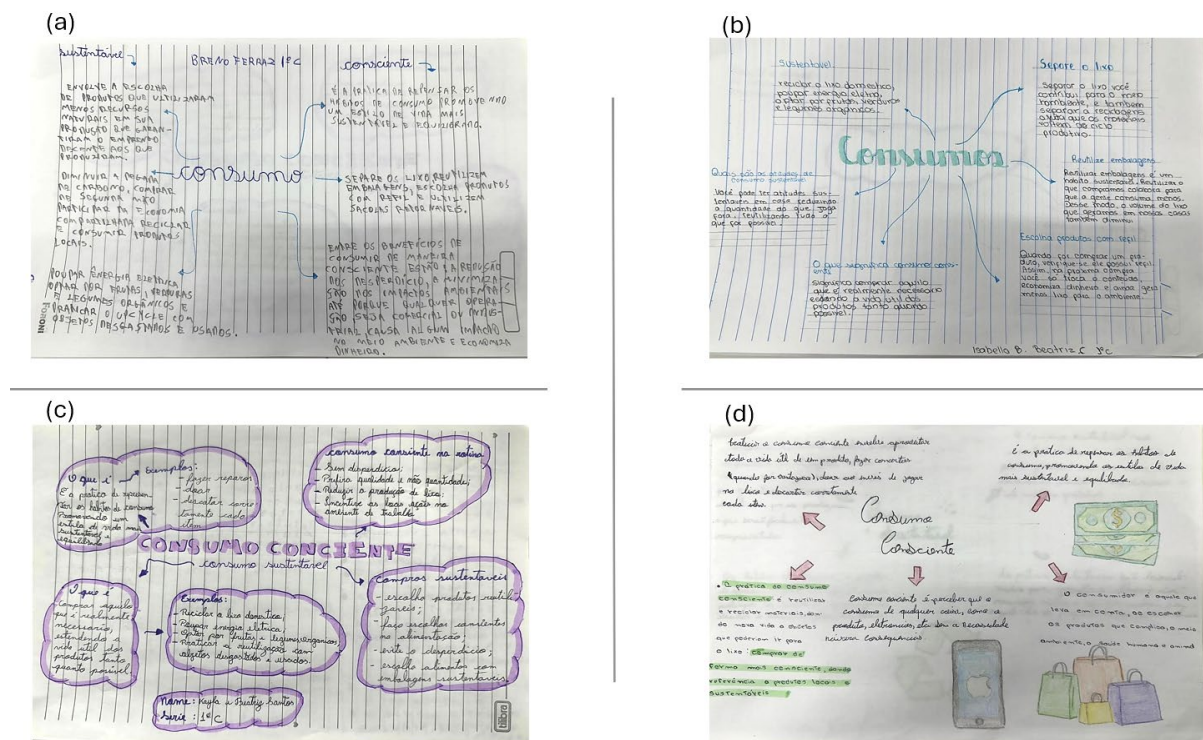 (a)
sustentável
BRENO FERRAZ 1ºC
consciente
ENVOLVE A ESCOLHA
DE PRODUTOS QUE UTILIZARAM
MENOS RECURSOS
NATURAIS EM SUA
PRODUÇÃO QUE GARAN-
TIRAM O EMPREGO
DESCENTE AOS QUE
PRODUZIRAM.
É A PRÁTICA DE REPENSAR OS
HÁBITOS DE CONSUMO PROMOVENDO
UM ESTILO DE VIDA MAIS
SUSTENTÁVEL E EQUILIBRADO.
consumo
DIMINUIR A PEGADA
DE CARBONO, COMPRAR
DE SEGUNDA MÃO
PARTICIPAR DA ECONOMIA
COMPARTILHADA RECICLAR
E CONSUMIR PRODUTOS
LOCAIS.
SEPARE OS LIXO REUTILIZEM
EMBALAGENS, ESCOLHA PRODUTOS
COM REFIL E UTILIZEM
SACOLAS RETORNAVEIS.
POUPAR ENERGIA ELETRICA
OPTAR POR FRUTAS, VERDURAS
E LEGUMES ORGÂNICOS E
O UPCYCLE COM
OBJETOS DESGASTADOS E USADOS.
ENTRE OS BENEFÍCIOS DE
CONSUMIR DE MANEIRA
CONSCIENTE ESTÃO A REDUÇÃO
NOS DESPERDICIO, A MINIMIZA-
ÇÃO NOS IMPACTOS AMBIENTAIS
ATÉ PORQUE QUALQUER OPERA-
ÇÃO SEJA COMERCIAL OU INDUS-
TRIAL CAUSA ALGUM IMPACTO
NO MEIO AMBIENTE E ECONOMIZA
DINHEIRO.
(b)
Sustentavel
reciclar o lixo domestico,
poupar energia eletrica,
optar por frutas, verduras
e legumes orgânicos.
Separe o lixo
Separar o lixo você
contribui para o meio
ambiente, e também
separar a reciclagens
ajuda que os materiais
voltem ao ciclo
produtivo.
Consumos
Quais são as atitudes de
consumo sustentavel
Você pode ter atitudes sus-
tentaveis em casa reduzindo
a quantidade do que joga
fora, reutilizando tudo o
que for possivel.
Reutilize embalagens
Reutilizar embalagens é um
habito sustentavel. Reutilizar o
que compramos colabora para
que a gente consuma menos.
Desse modo, o volume do lixo
que geramos em nossas casas
também diminui.
O que significa consumo consi-
ente
significa comprar aquilo
que é realmente necessario
estendendo a vida util dos
produtos tanto quanto
possivel.
Escolha produtos com refil
Quando for comprar um pro-
duto, verifique se ele possui refil.
Assim, na proxima compra
você só troca o conteudo,
economiza dinheiro e ainda gera
menos lixo para o ambiente.
Isabella B. Beatriz C 1ºC
(c)
O que é
É a prática de repensar
os hábitos de consumo
Promovendo um
estilo de vida mais
sustentável e
equilibrio
Exemplos:
- fazer reparos
- doar
- descartar corre
tamente cada
item
consumo consiente na rotina
- Sem desperdicio;
- Prefira qualidade e não quantidade;
- Reduzir a produção de lixo;
- Incentive as boas ações no
ambiente de trabalho
CONSUMO CONCIENTE
consumo sustentável
O que é
Comprar aquilo
que é realmente
necessário,
estendendo a
vida útil dos
produtos tanto
quanto possível.
Exemplos:
- Reciclar o lixo doméstico,
- Poupar energia elétrica,
- Optar por frutas e legumes orgânicos
- Praticar a reutilização com
objetos desgastados e usados.
Compras sustentaveis
- escolha produtos reutili-
zaveis;
- faça escolhas conscientes
na alimentação;
- evite o desperdício;
- escolha alimentos com
embalagens sustentaveis.
Nome: Kayla e Beatriz Santos
Serie: 1º C
tilibra
(d)
Praticar o consumo consciente envolve aproveitar
toda a vida útil de um produto, fazer consertos
(quando for vantajoso), doar ao invés de jogar
no lixo e descartar corretamente
cada item.
É a prática de repensar os hábitos de
consumo, promovendo um estilo de vida
mais sustentável e equilibrado.
Consumo
Consciente
• A prática do consumo
consciente é reutilizar
e reciclar materiais, dan
do nova vida a objetos
que poderiam ir para
o lixo. Comprar de
forma mais consciente, dando
preferência a produtos locais e
sustentáveis
Consumo consciente é perceber que o
consumo de qualquer coisa, como a
produto, eletronicos, etc.
consequências
O consumidor é aquele que
leva em conta, ao escolher
os produtos que compra, o meio
ambiente, a saúde humana e animal